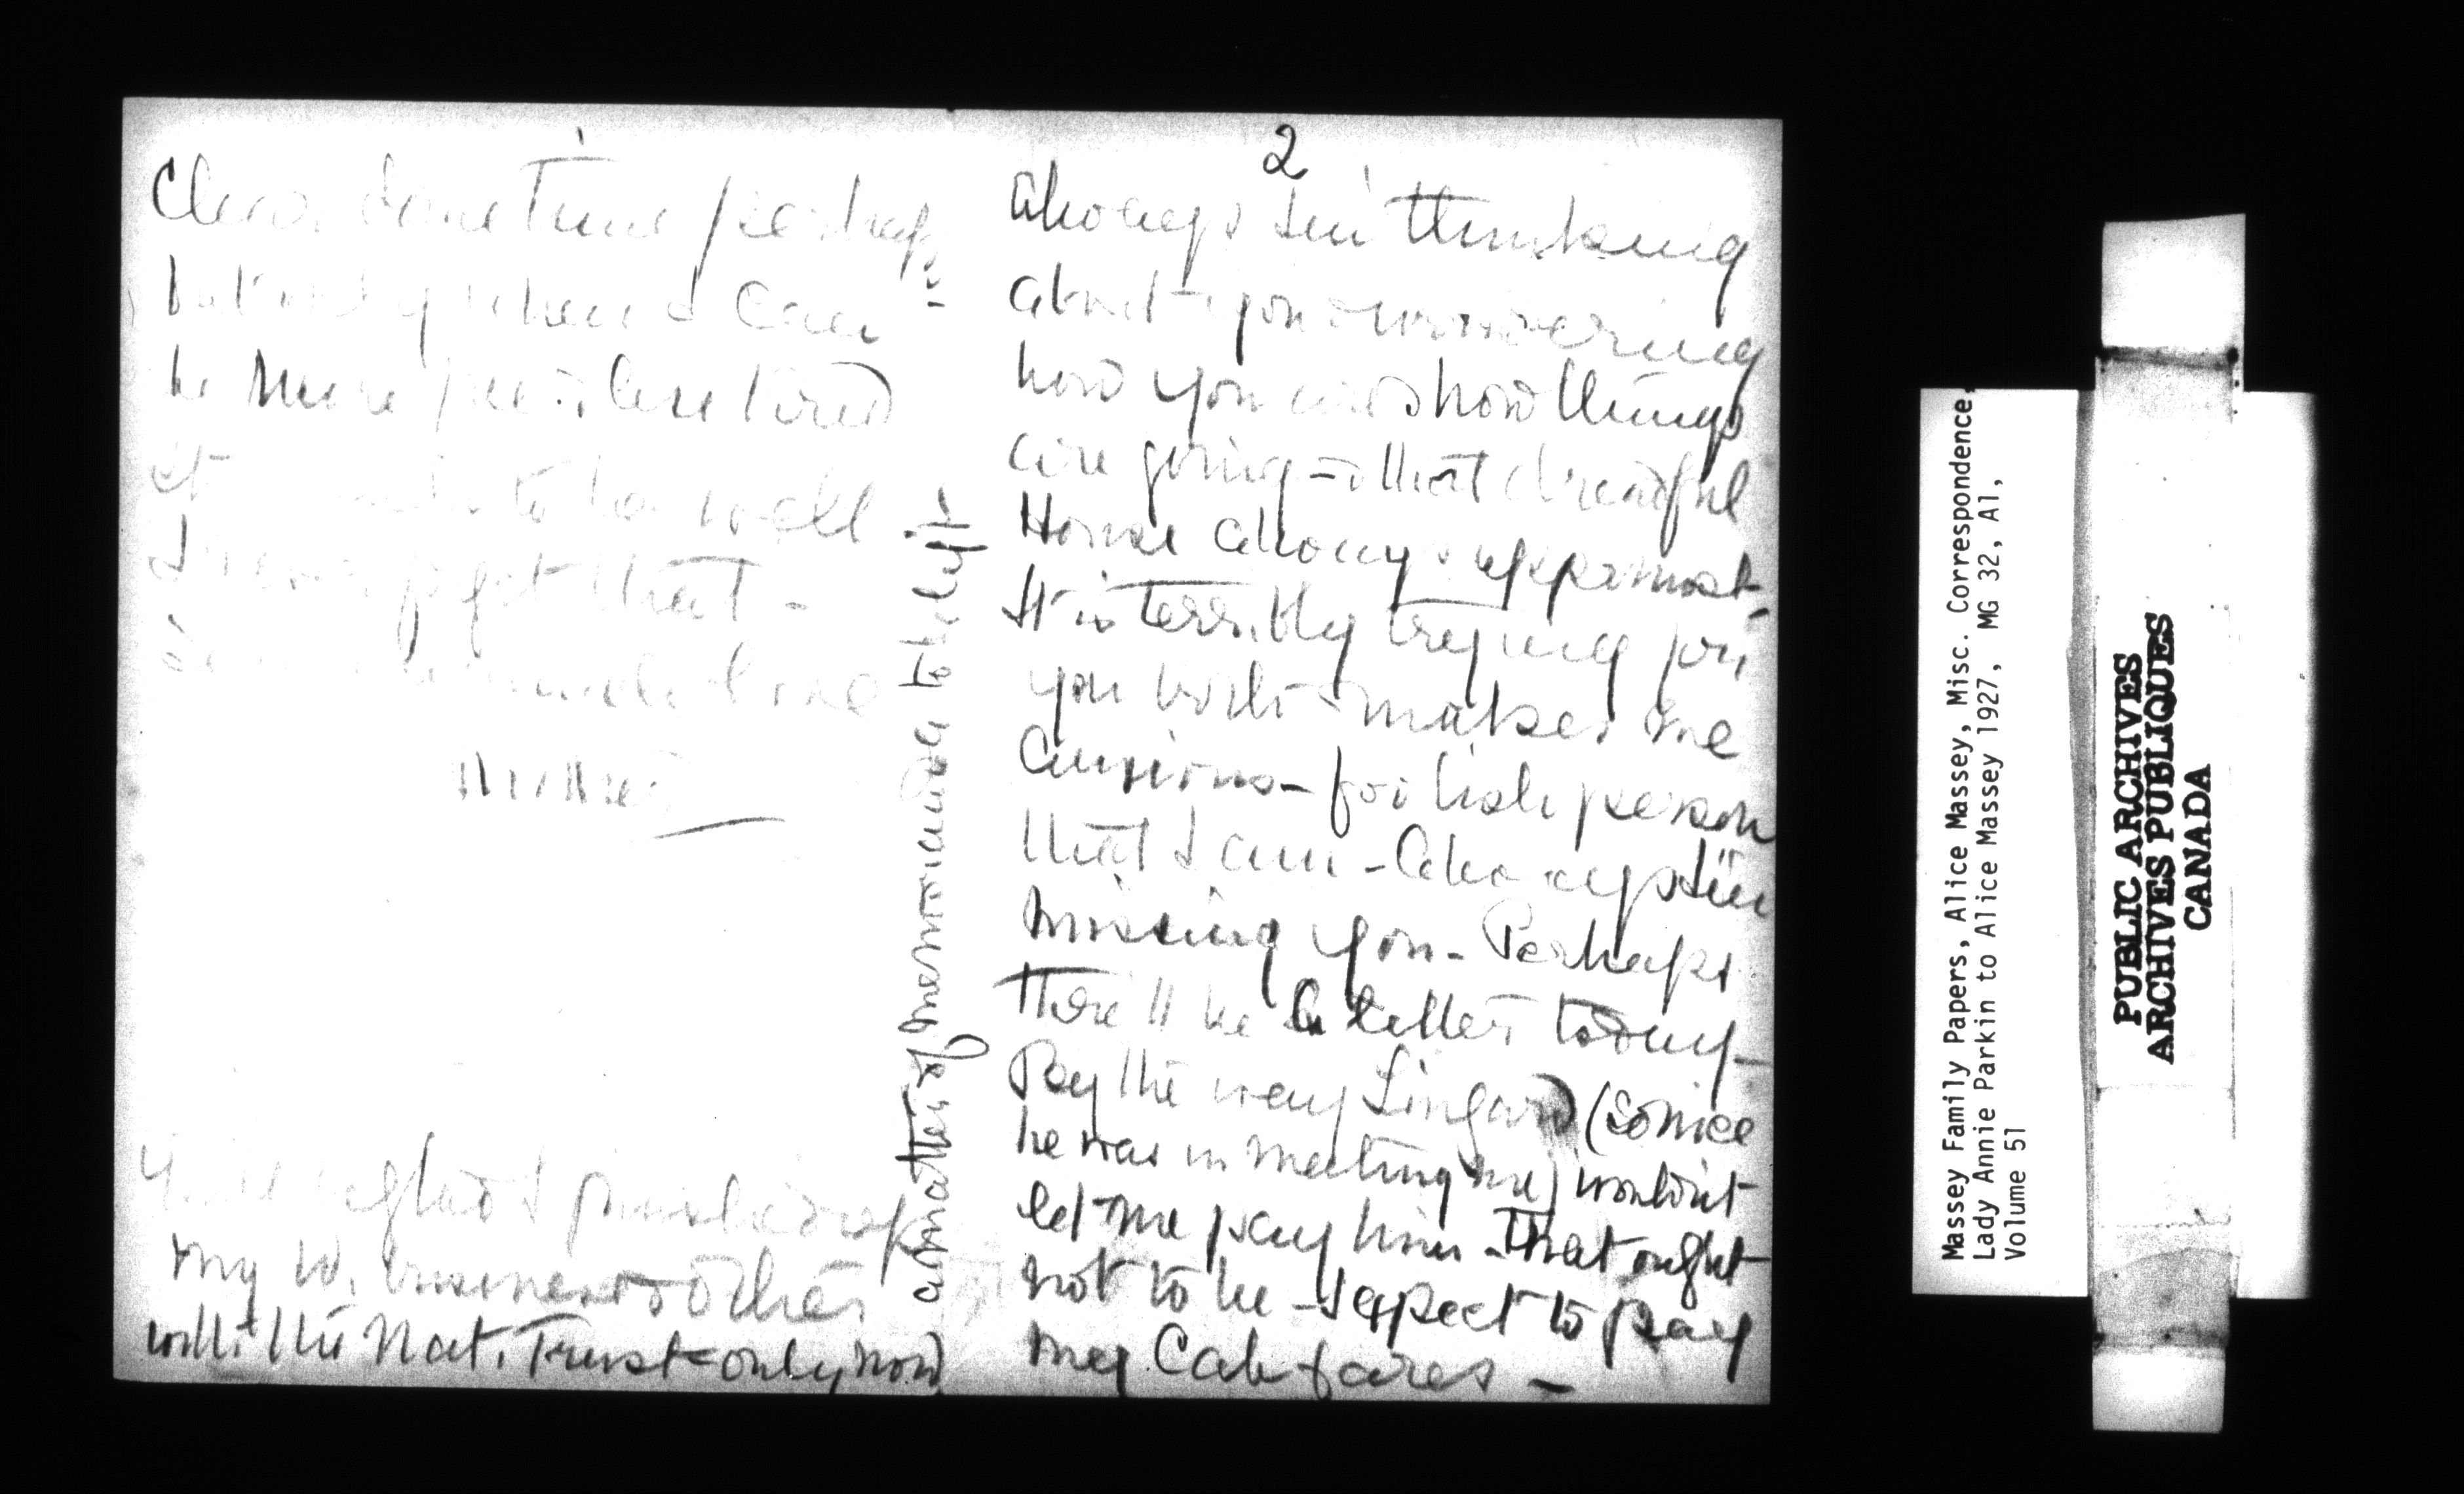 Clear sometime perhaps -
but only when I can
be more or less tired
It to be well
I never forget that -
much love
Mother
You'll be glad I finished up
my W. business & other
with the Nat. Trust - only now
a matter of memoranda to be kept -
2
Always I'm thinking
about you & wondering
how you are & how things
are going - & that dreadful
House always uppermost.
It is terribly trying for
you both - makes me
anxious - foolish person
that I am - Always I'm
missing you - Perhaps
there'll be a letter today -
By the way Lingard (so nice
he was in meeting me) wouldn't
let me pay him - That ought
not to be - I expect to pay
my Cab fares -
Massey Family Papers, Alice Massey, Misc. Correspondence,
Lady Annie Parkin to Alice Massey 1927, MG 32, A1,
Volume 51
PUBLIC ARCHIVES
ARCHIVES PUBLIQUES
CANADA